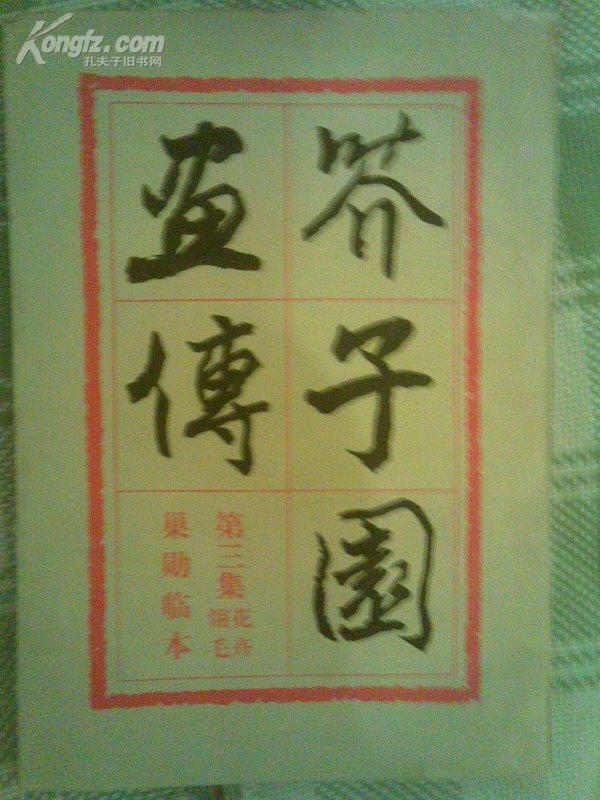 Kongfz.com
孔夫子旧书网
芥子園
畫傳
第三集 花卉
翎毛
巢勋临本